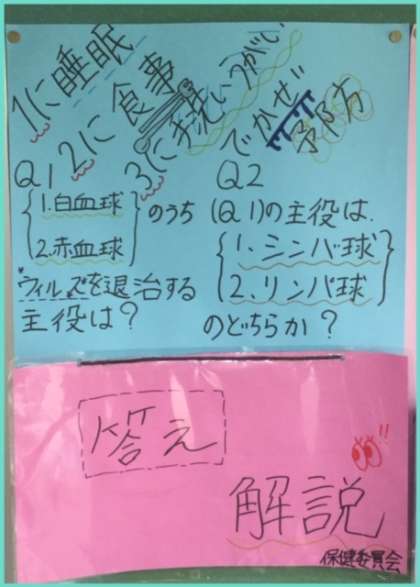 1に睡眠
2に食事
3に手洗いうがい
でかぜ予防
Q1
1.白血球
2.赤血球
のうち
ウィルスを退治する
主役は?
Q2
(Q1)の主役は.
1、シンバ球
2、リンパ球
のどちらか?
答え
解説
!!
保健委員会